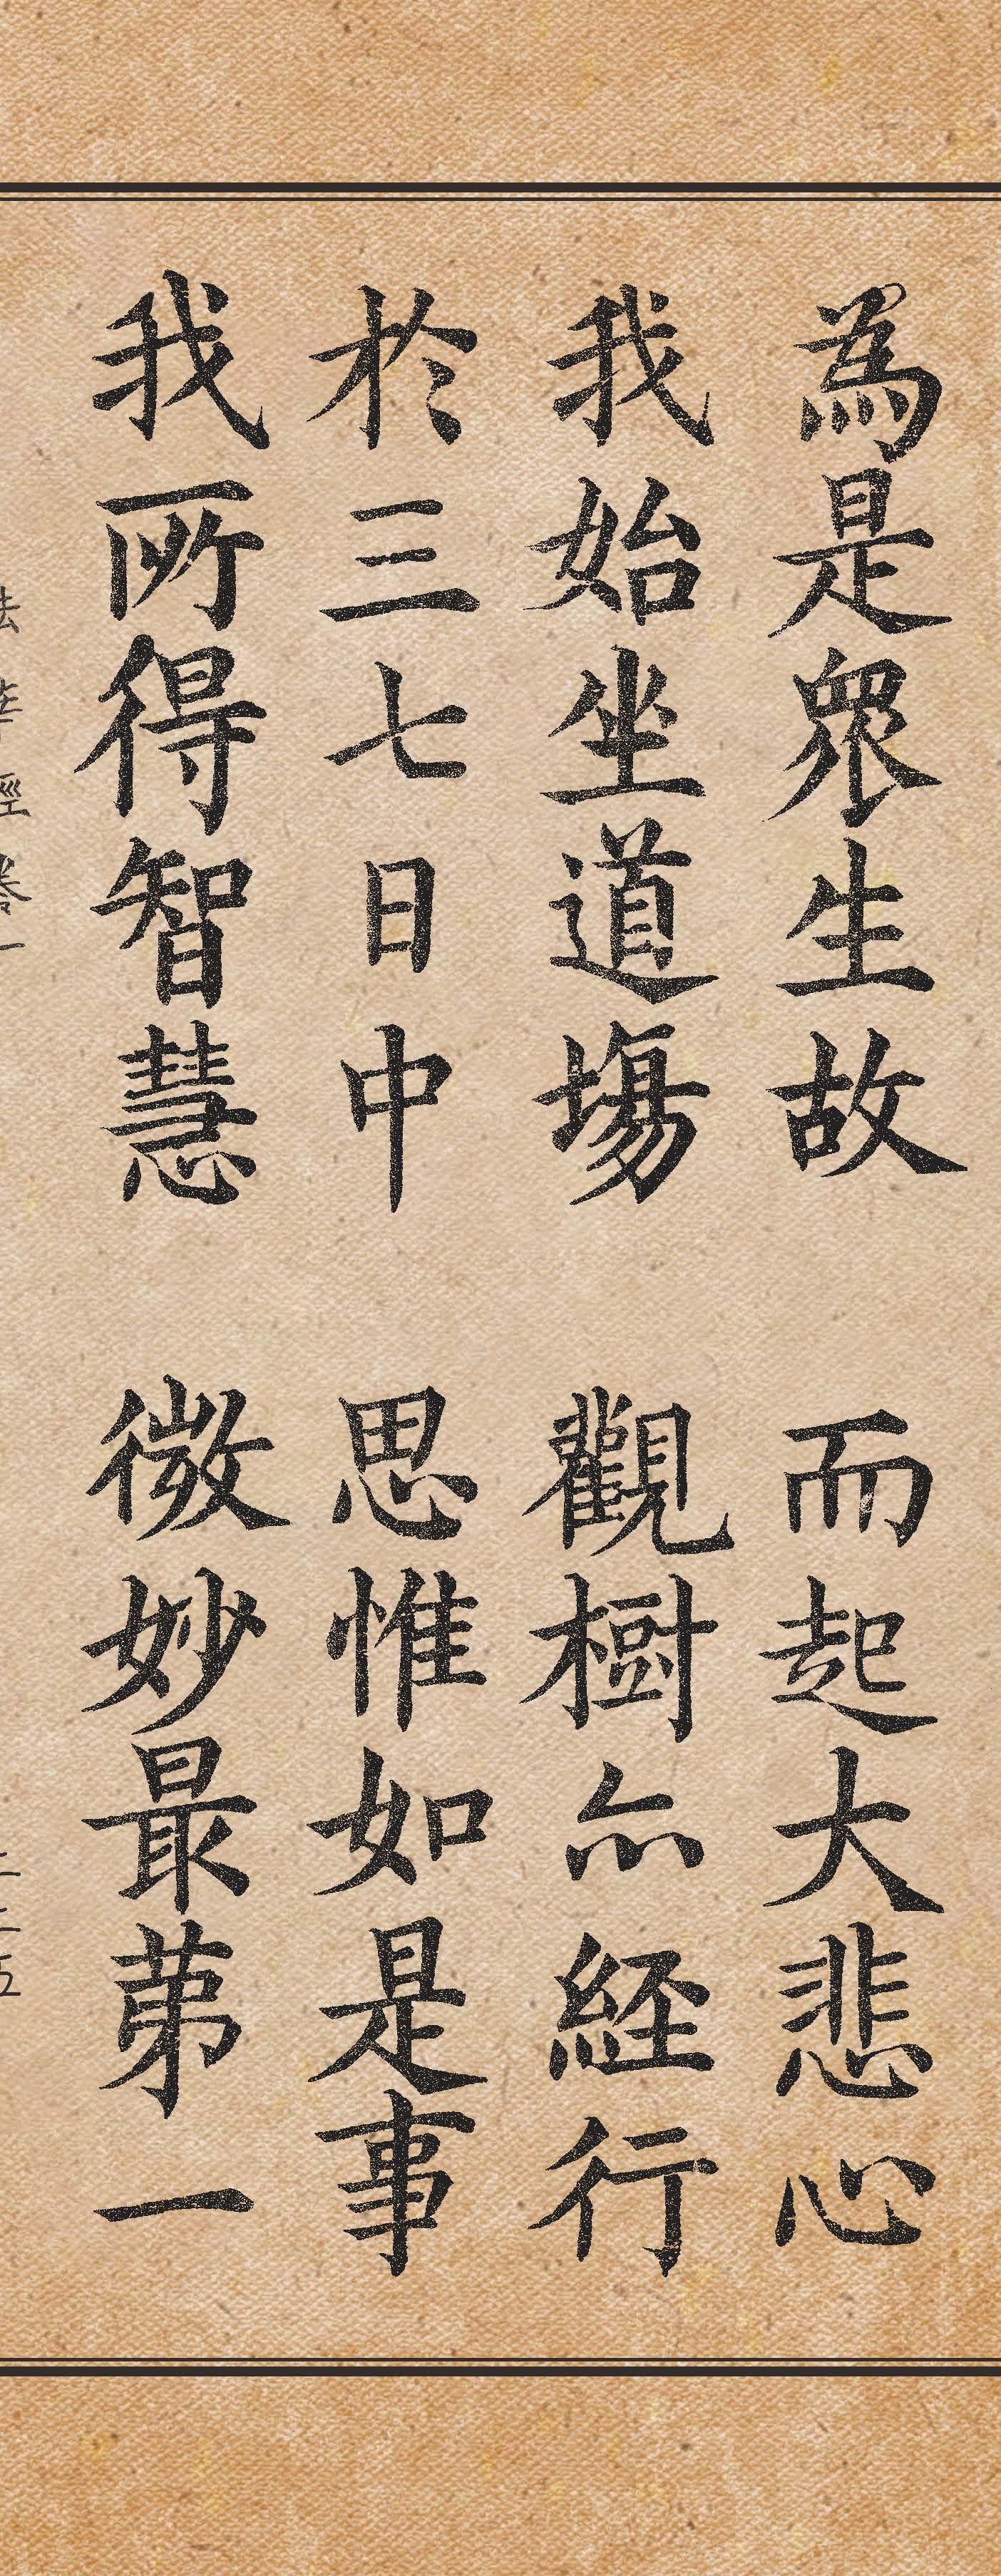 為是眾生故　而起大悲心
我始坐道場　觀樹亦經行
於三七日中　思惟如是事
我所得智慧　微妙最第一
法華經卷一　二二五